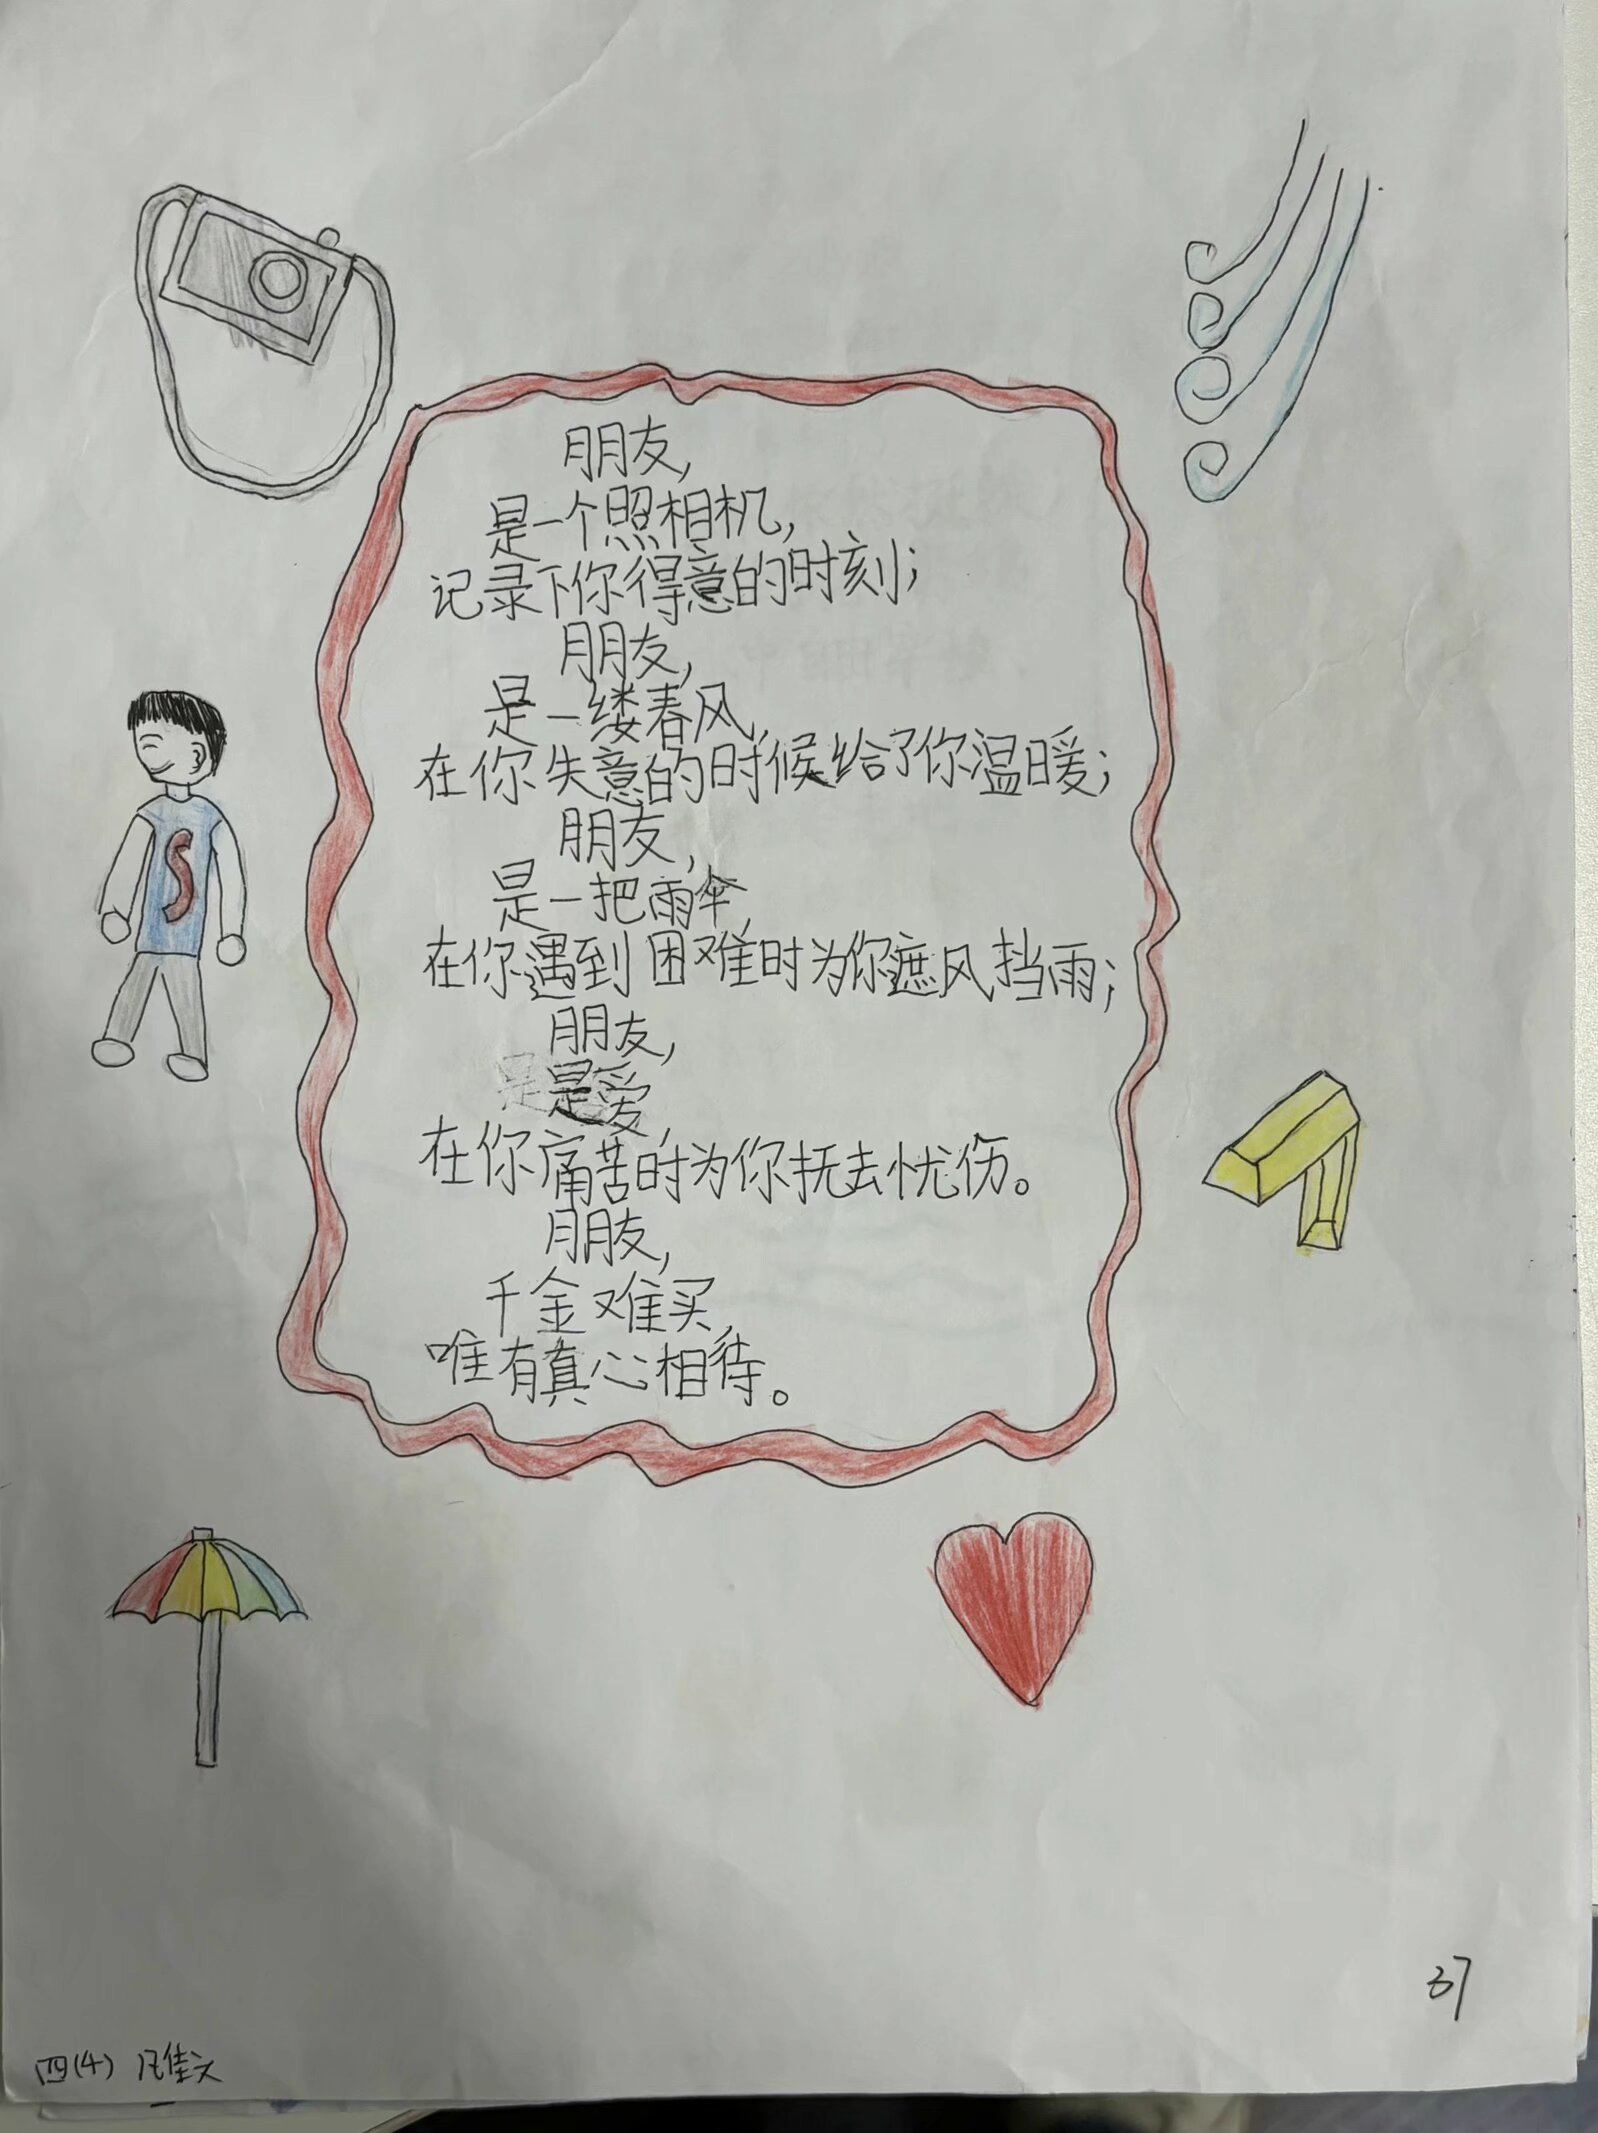 朋友,
是一个照相机,
记录下你得意的时刻;
朋友,
是一缕春风,
在你失意的时候给了你温暖;
朋友,
是一把雨伞,
在你遇到困难时为你遮风挡雨;
朋友,
是爱,
在你痛苦时为你抚去忧伤。
朋友,
千金难买,
唯有真心相待。
S
37
四(4) 佳文